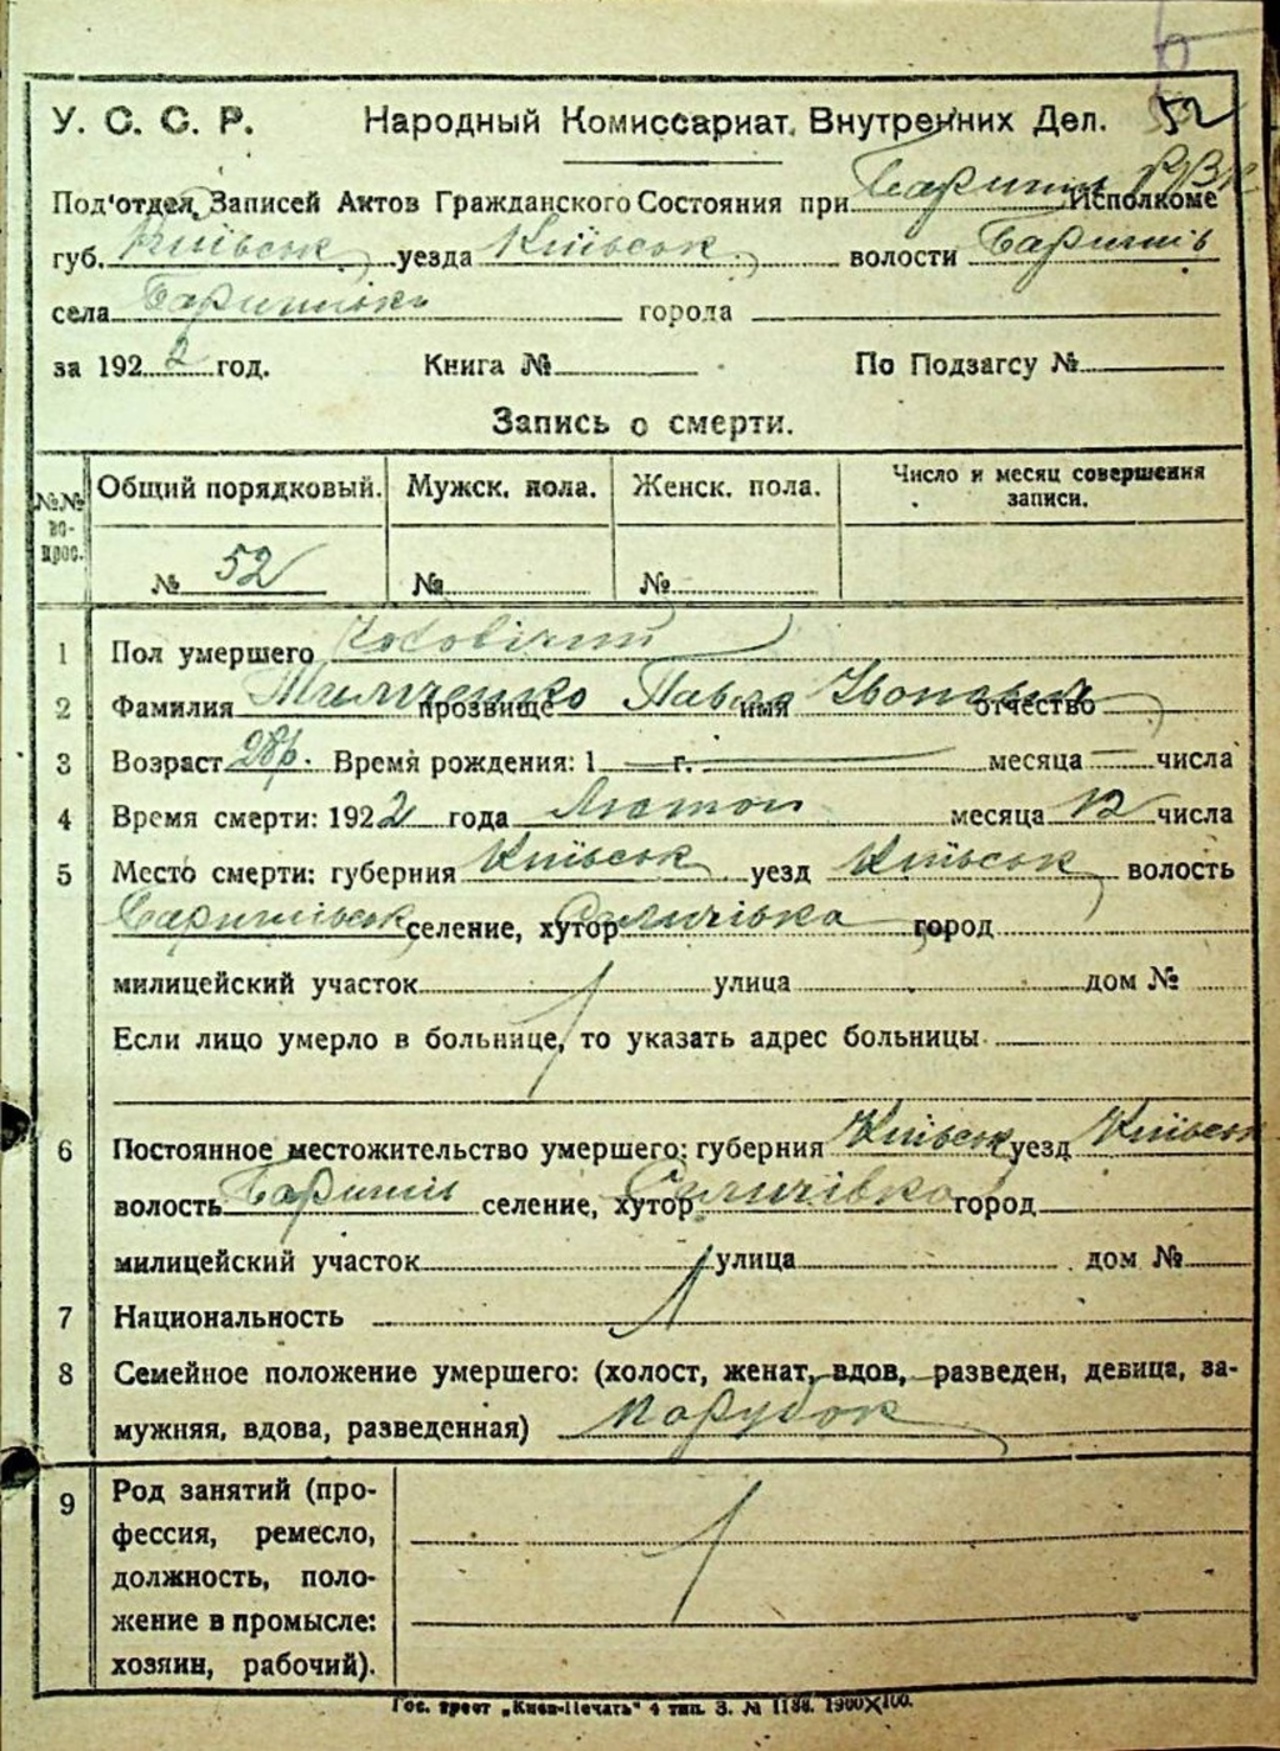 52
У. С. С. Р. Народный Комиссариат Внутренних Дел.
Под'отдел Записей Актов Гражданского Состояния при Баришів РВК Исполкоме
губ. Київськ уезда Київськ волости Баришів
села Баришівки города
за 1922 год. Книга № По Подзагсу №
Запись о смерти.
№№ во-прос. Общий порядковый. Мужск. пола. Женск. пола. Число и месяц совершения записи.
№ 52 № №
1 Пол умершего Чоловічий
2 Фамилия Тимченко прозвище Павло имя Іванович отчество
3 Возраст 2 1 Время рождения: 1 г. месяца числа
4 Время смерти: 1922 года Лютого месяца 12 числа
5 Место смерти: губерния Київськ уезд Київськ волость
Баришівськ селение, хутор Селичівка город
милицейский участок улица дом №
Если лицо умерло в больнице, то указать адрес больницы
6 Постоянное местожительство умершего: губерния Київськ уезд Київськ
волость Баришів селение, хутор Селичівка город
милицейский участок улица дом №
7 Национальность
8 Семейное положение умершего: (холост, женат, вдов, разведен, девица, за-
мужняя, вдова, разведенная) парубок
9 Род занятий (про-
фессия, ремесло,
должность, поло-
жение в промысле:
хозяин, рабочий).
Гос. трест „Киев-Печать" 4 тип. З. № 1188. 1900X100.